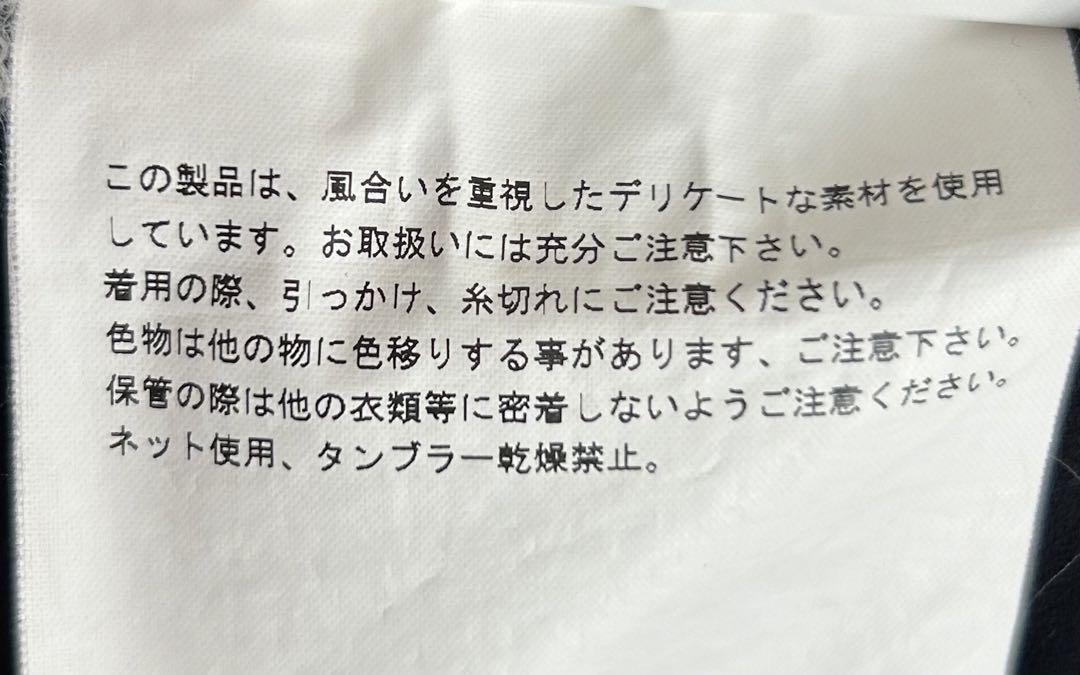 この製品は、風合いを重視したデリケートな素材を使用
しています。お取扱いには充分ご注意下さい。
着用の際、引っかけ、糸切れにご注意ください。
色物は他の物に色移りする事があります、ご注意下さい。
保管の際は他の衣類等に密着しないようご注意ください。
ネット使用、タンブラー乾燥禁止。